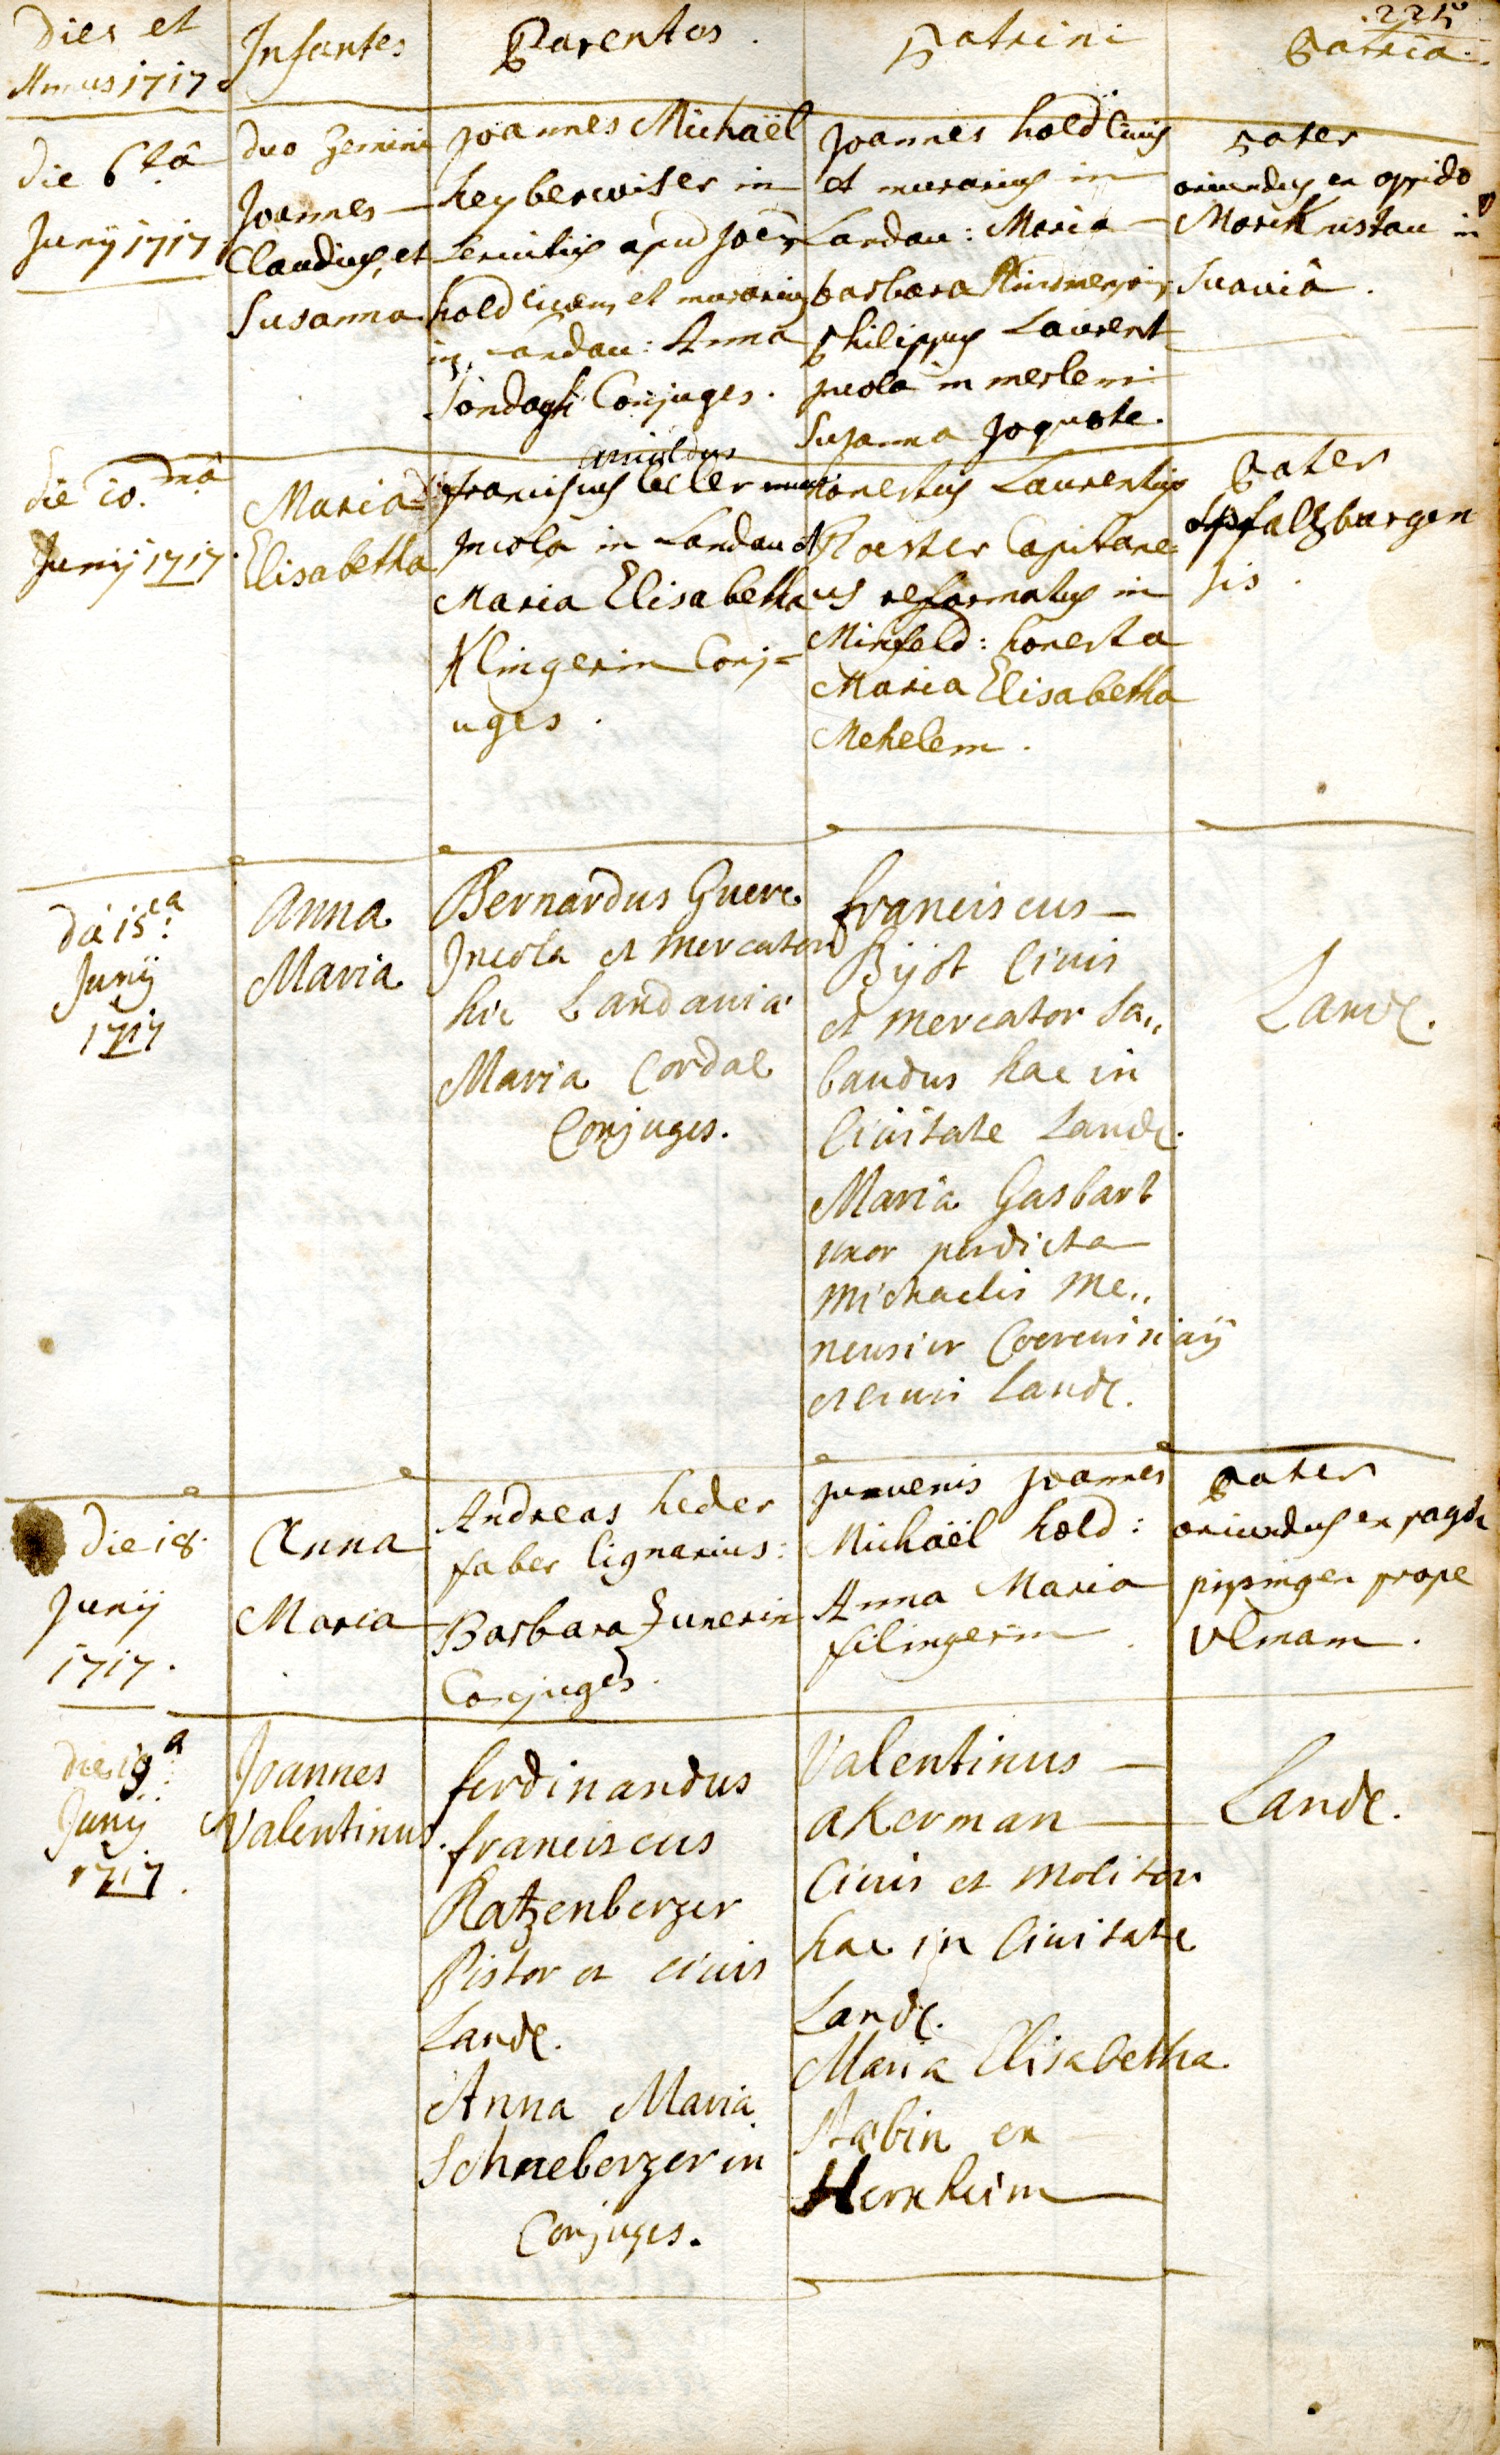 225
Dies et
Annus 1717
Infantes
Parentes.
Patrini
Patria.
die 6tâ
Junÿ 1717
duo gemini
Joannes —
Claudius, et
Susanna.
Joannes Michaël
heyberwiser in
servitiis apud Joên
hold civem et murarium
in Landau: Anna
Sondagh Conjuges.
Joannes hold Civis
et murarius in
Landau: Maria —
barbara
Philippus Laurent
incola in merlem
Susanna Joquote.
Pater
oriundus ex oppido
in
Suaviâ.
die 10.mâ
Junÿ 1717.
Maria
Elisabetha
Arnoldus
franciscus Celler
Incola in Landau et
Maria Elisabetha
Klingerin Conj=
uges.
honestus Laurentius
Roester Capitane=
us reformatus in
Minfeld: honesta
Maria Elisabetha
Mehelem.
Pater
pfalzburgen
sis.
die 15ta
Junÿ
1717
Anna
Maria
Bernardus Guere
Incola et mercator
hic Landavia
Maria Cordal
Conjuges.
franciscus —
Bijot Civis
et mercator Sa„
baudus hac in
Civitate Lande.
Maria Gasbart
uxor perdicta
Michaelis Me„
neusier Cerevisiarÿ
et civis Lande.
Lande.
Die 18.
Junÿ
1717.
Anna
Maria
Andreas heder
faber lignarius:
Barbara Zunerin
Conjuges.
juvenis Joannes
Michaël hold:
Anna Maria
filingerin
Pater
oriundus ex pago
pipsingen prope
Ulmam.
die 19a
Junÿ
1717.
Joannes
Valentinus.
ferdinandus
franciscus
Katzenberger
Pistor et civis
Lande.
Anna Maria
Schneberger in
Conjuges.
Valentinus —
akerman —
Civis et molitor
hac in Civitate
Lande.
Maria Elisabetha
Stabin ex
Herxheim —
Lande.